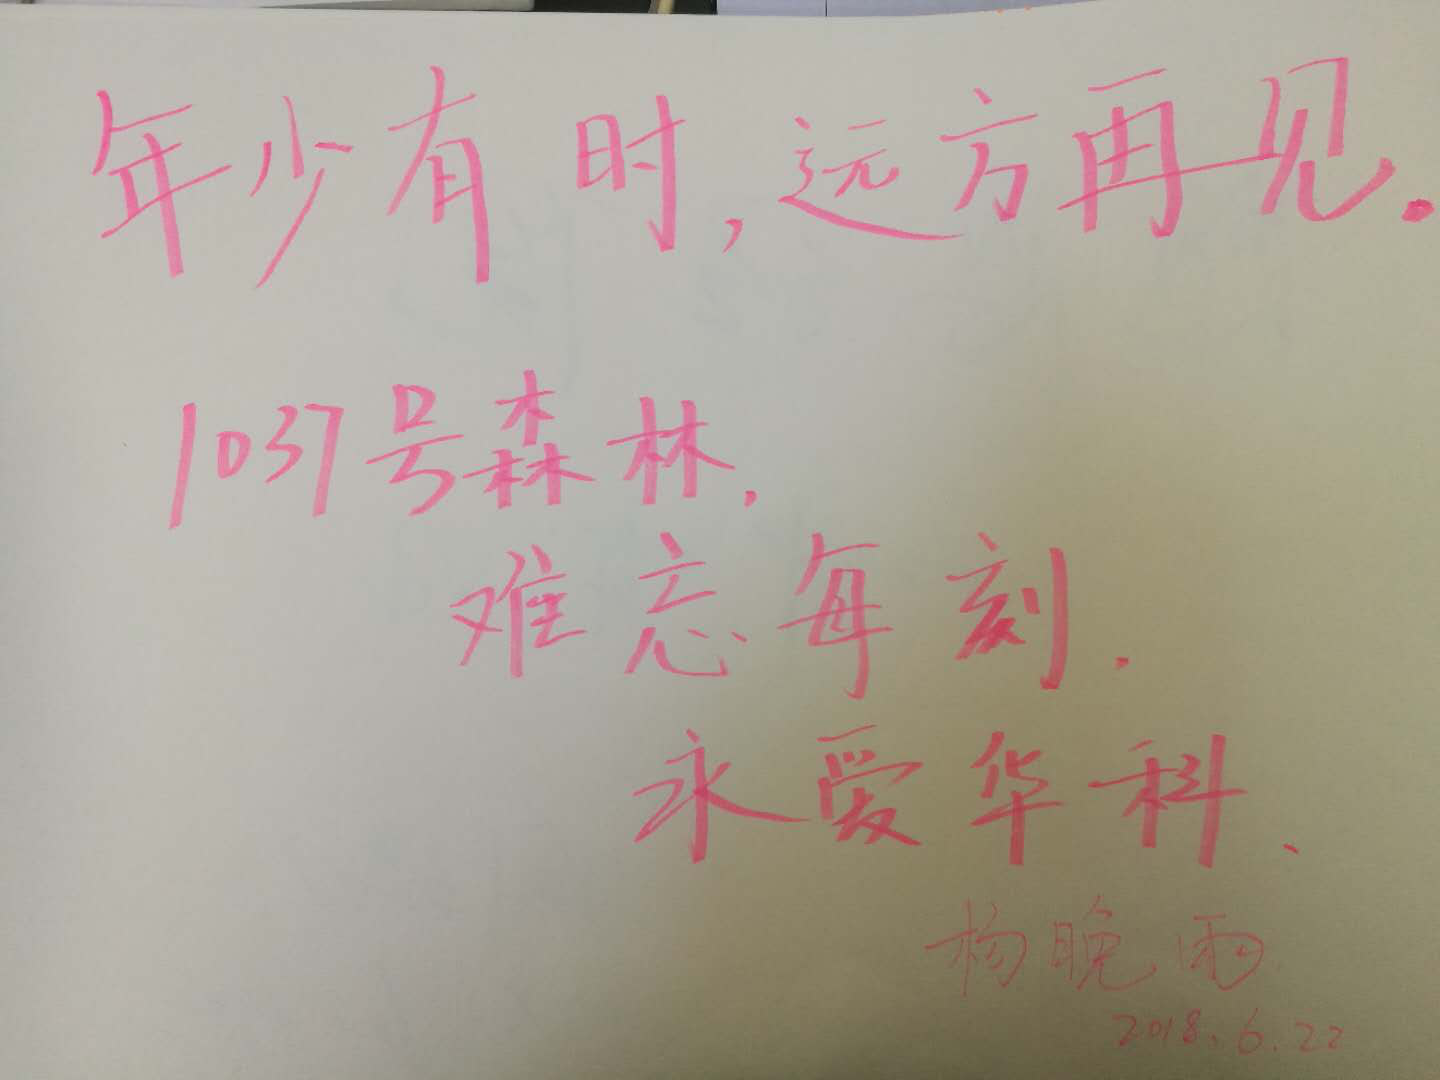 年少有时,远方再见.
1037号森林.
难忘每刻.
永爱华科.
杨晚雨
2018.6.22